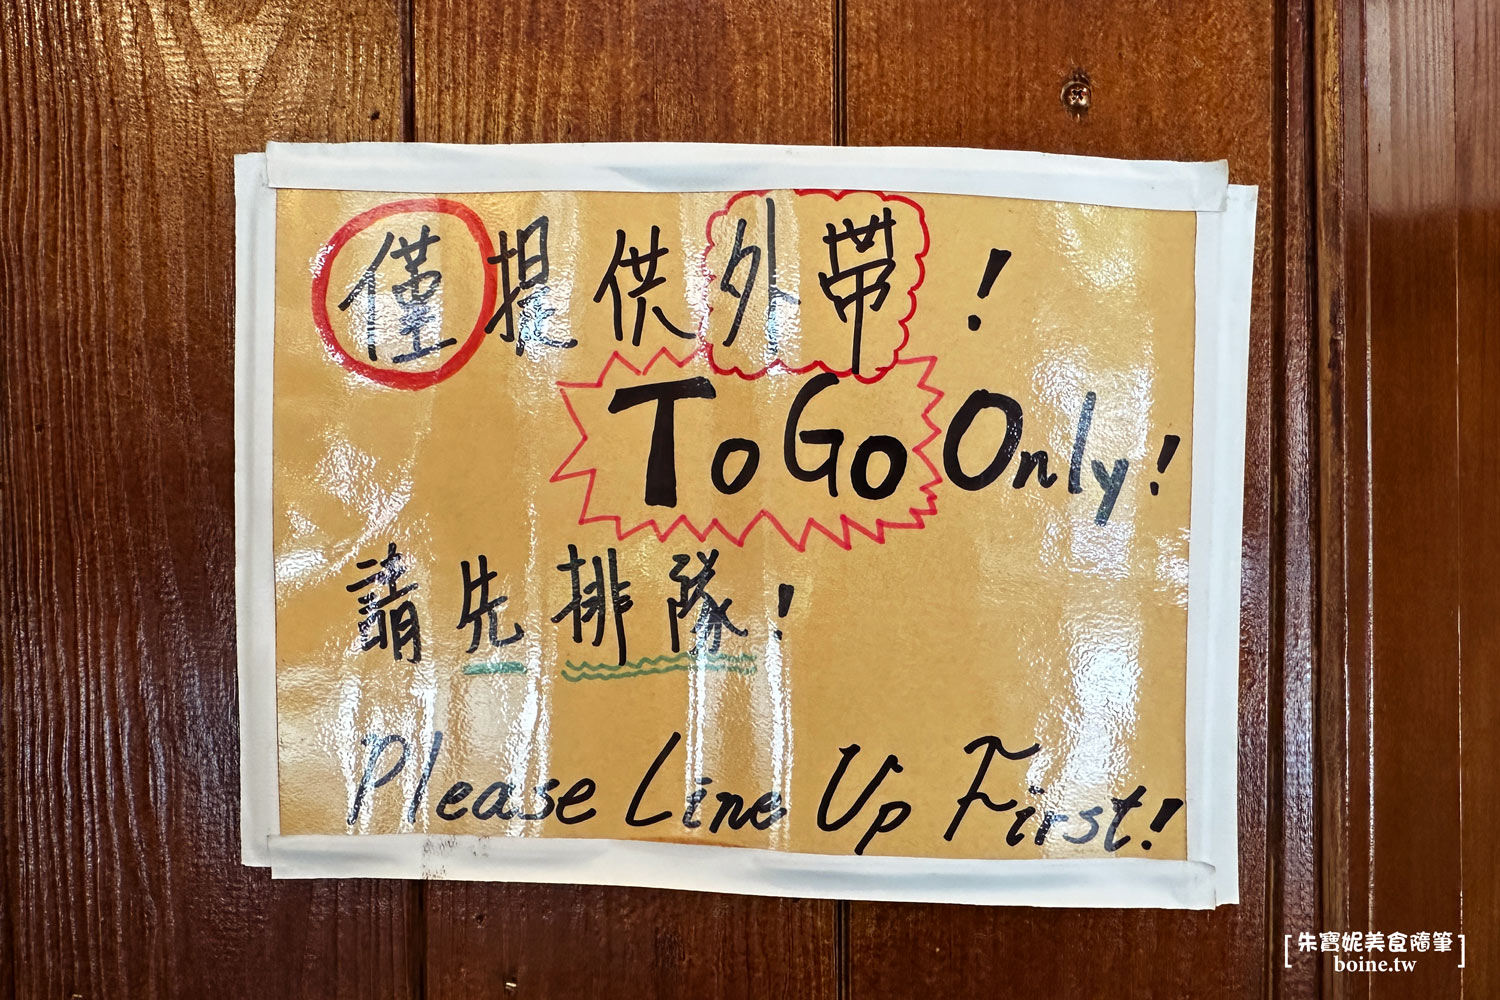 僅提供外帶！
To Go Only!
請先排隊！
Please Line Up First!
[朱寶妮美食隨筆]
boine.tw